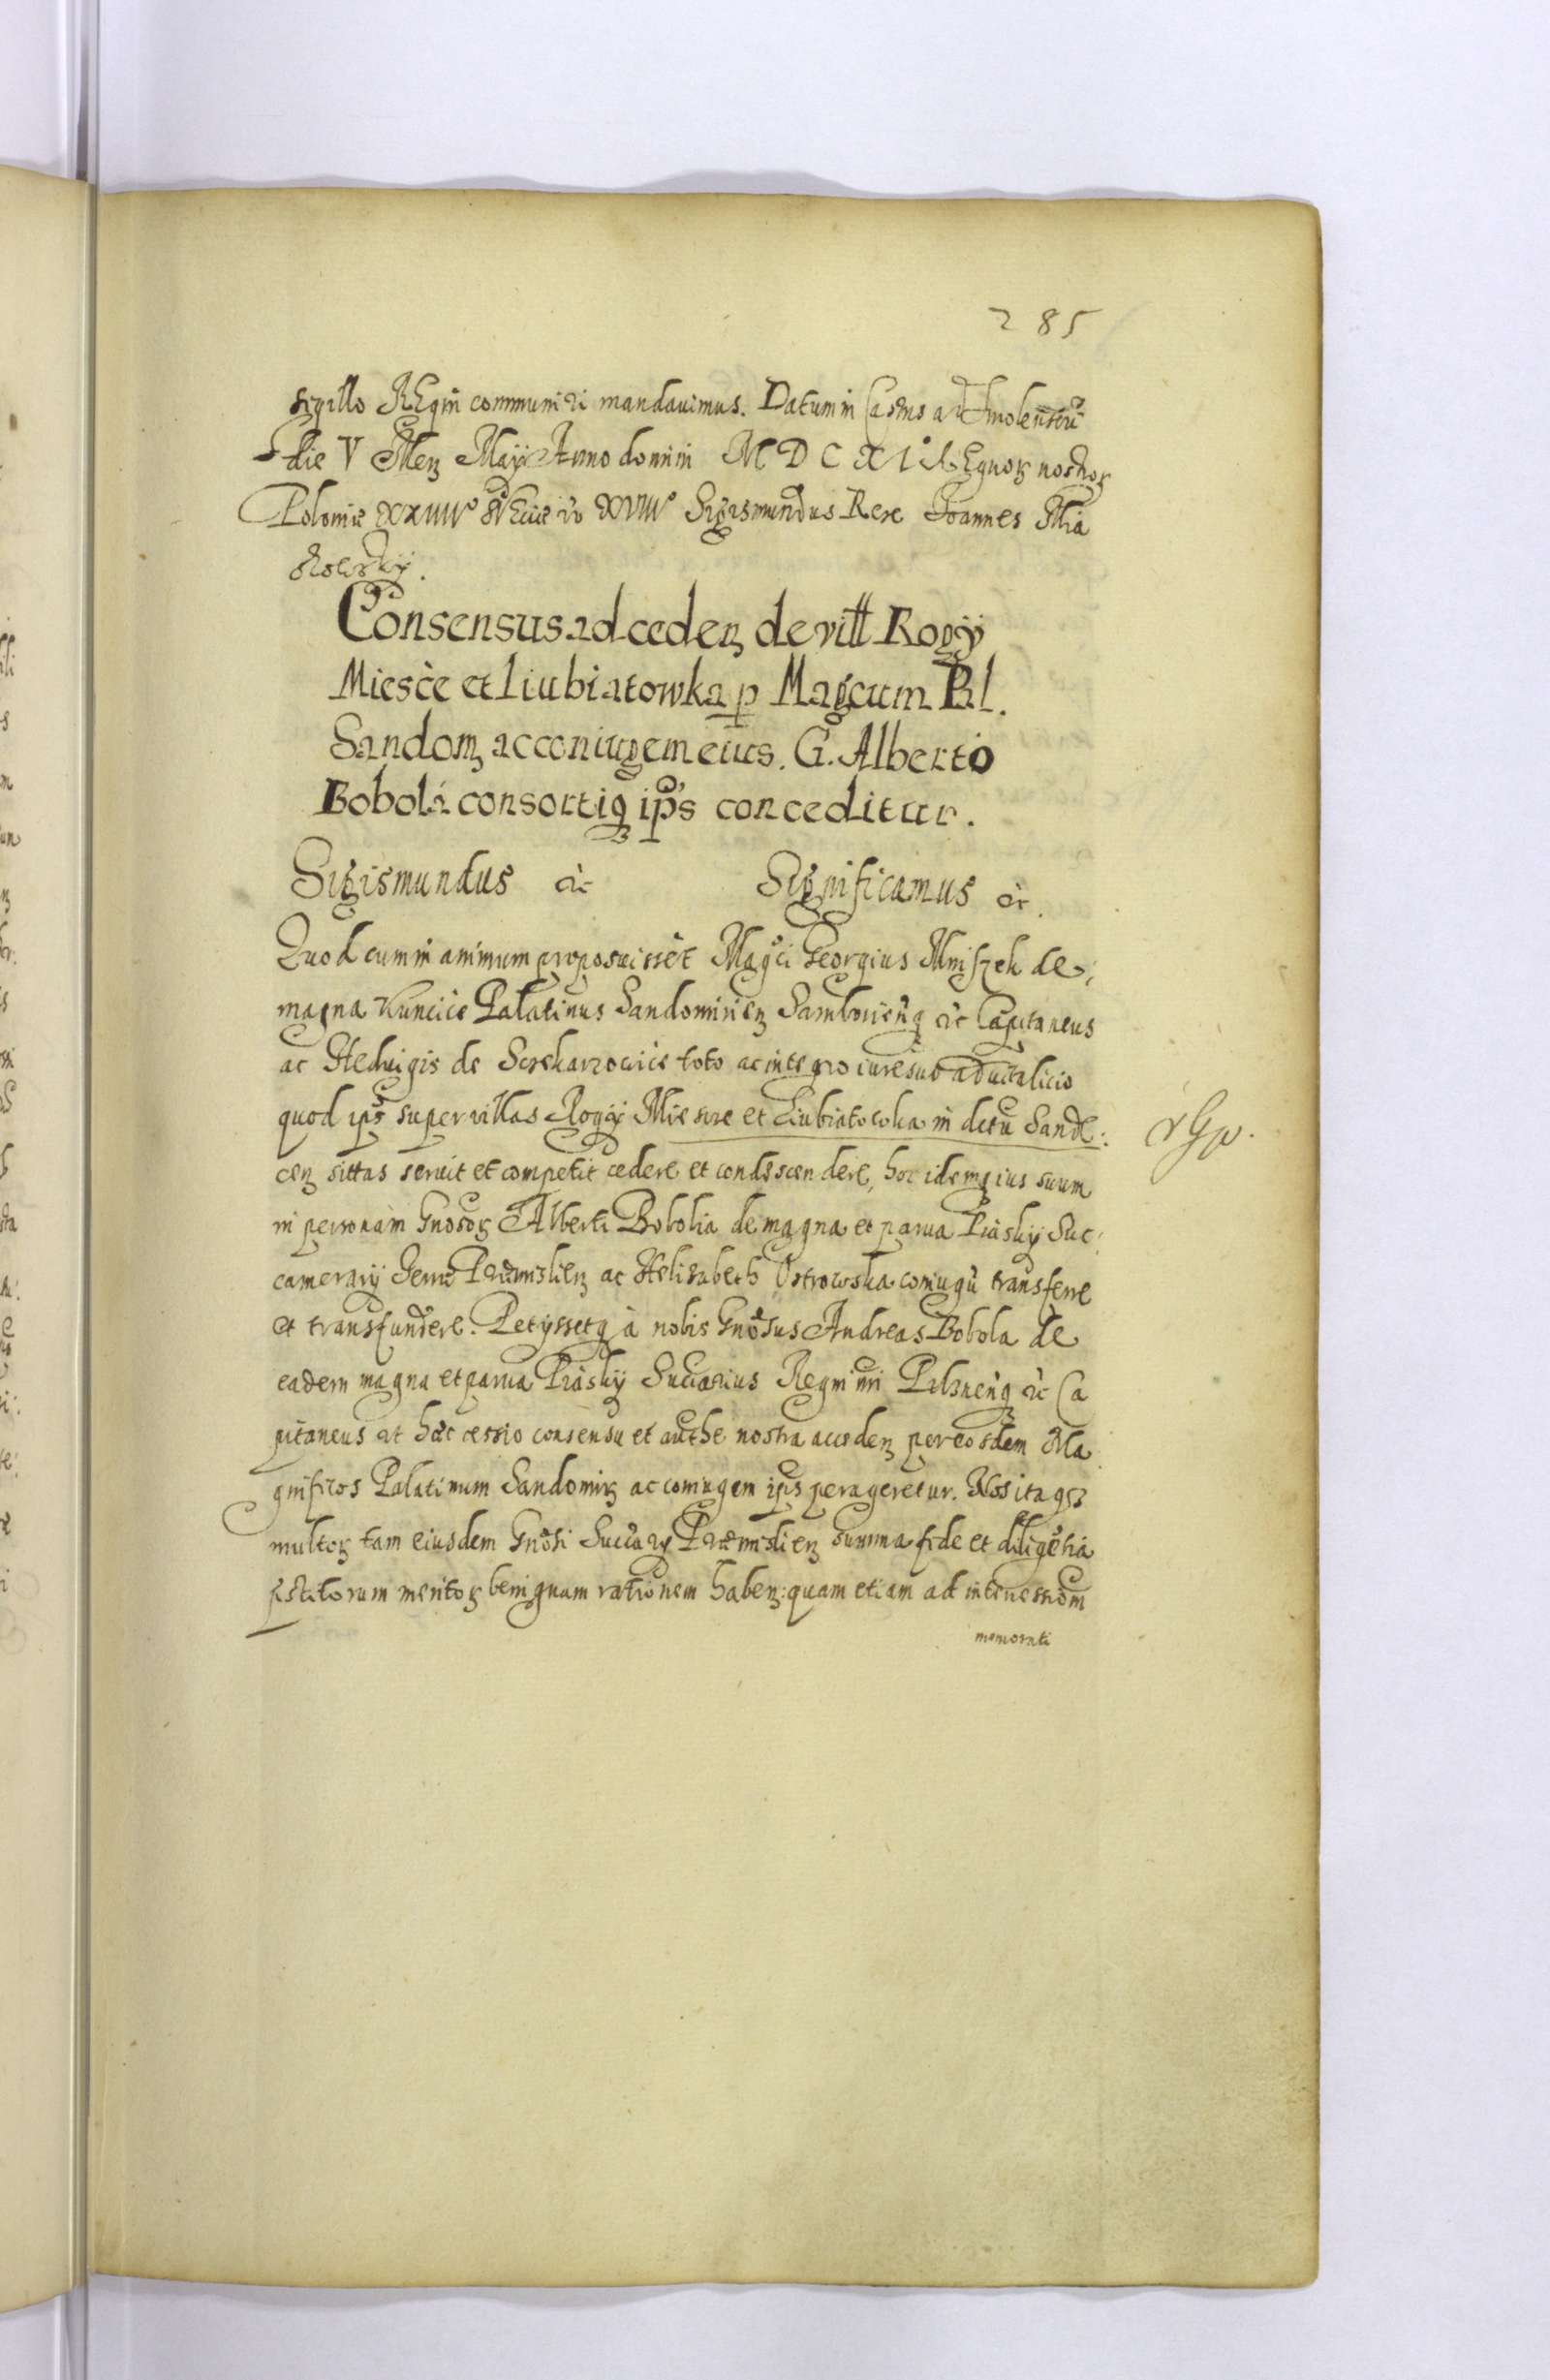 285
sigillo Regni communiri mandauimus. Datum in Castris ad Smolenscū
die V Menꝫ Maÿ Anno domini M D C XI Regnoꝝ nostroꝝ
Poloniæ XXIIII° Sueciæ v̄o XVIII° Sigismundus Rex Joannes Mia
skowskÿ.
Consensus ad cedenꝫ de vill Rogÿ
Miesce et Liubiatowka p Magcum Pal.
Sandomꝫ ac coniugem eius. G. Alberto
Bobola consortiqꝫ ip̄s conceditur.
Sigismundus &c Significamus &c.
Quod cum in animum proposuissēt Magci Georgius Mniszek de
magna Kuncice Palatinus Sandomirienꝫ Samborienqꝫ &c Capitaneus
ac Hedvigis de toto ac integro iure suo aduitalicio
quod ip̄s super villas Rogÿ Miesce et Liubiatowka in distū Sand
cenꝫ sittas seruit et competit cedere et condescendere, hoc idemqꝫ ius suum
in personam Gnosoꝝ Alberti Bobolia de magna et parua Piaskÿ Suc:
camerarÿ Terræ Præmislienꝫ ac Helisabeth Ostrowska coniugū transferre
et transfundere. Petÿssetqꝫ à nobis Gnosus Andreas Bobola de
eadem magna et parua Piaskÿ Succarius Regni nri Pilsnenqꝫ &c Ca
pitaneus ut hæc cessio consensu et authe nostra accedenꝫ per eosdem Ma
gnificos Palatinum Sandomirꝫ ac coniugem ip̄s perageretur. Nos itaqꝫ
multoꝝ tam eiusdem Gnosi Succarÿ Præmislienꝫ summa fide et diligētia
pstitorum meritoꝝ benignam rationem habenꝫ: quam etiam ad intercessiom
memorati